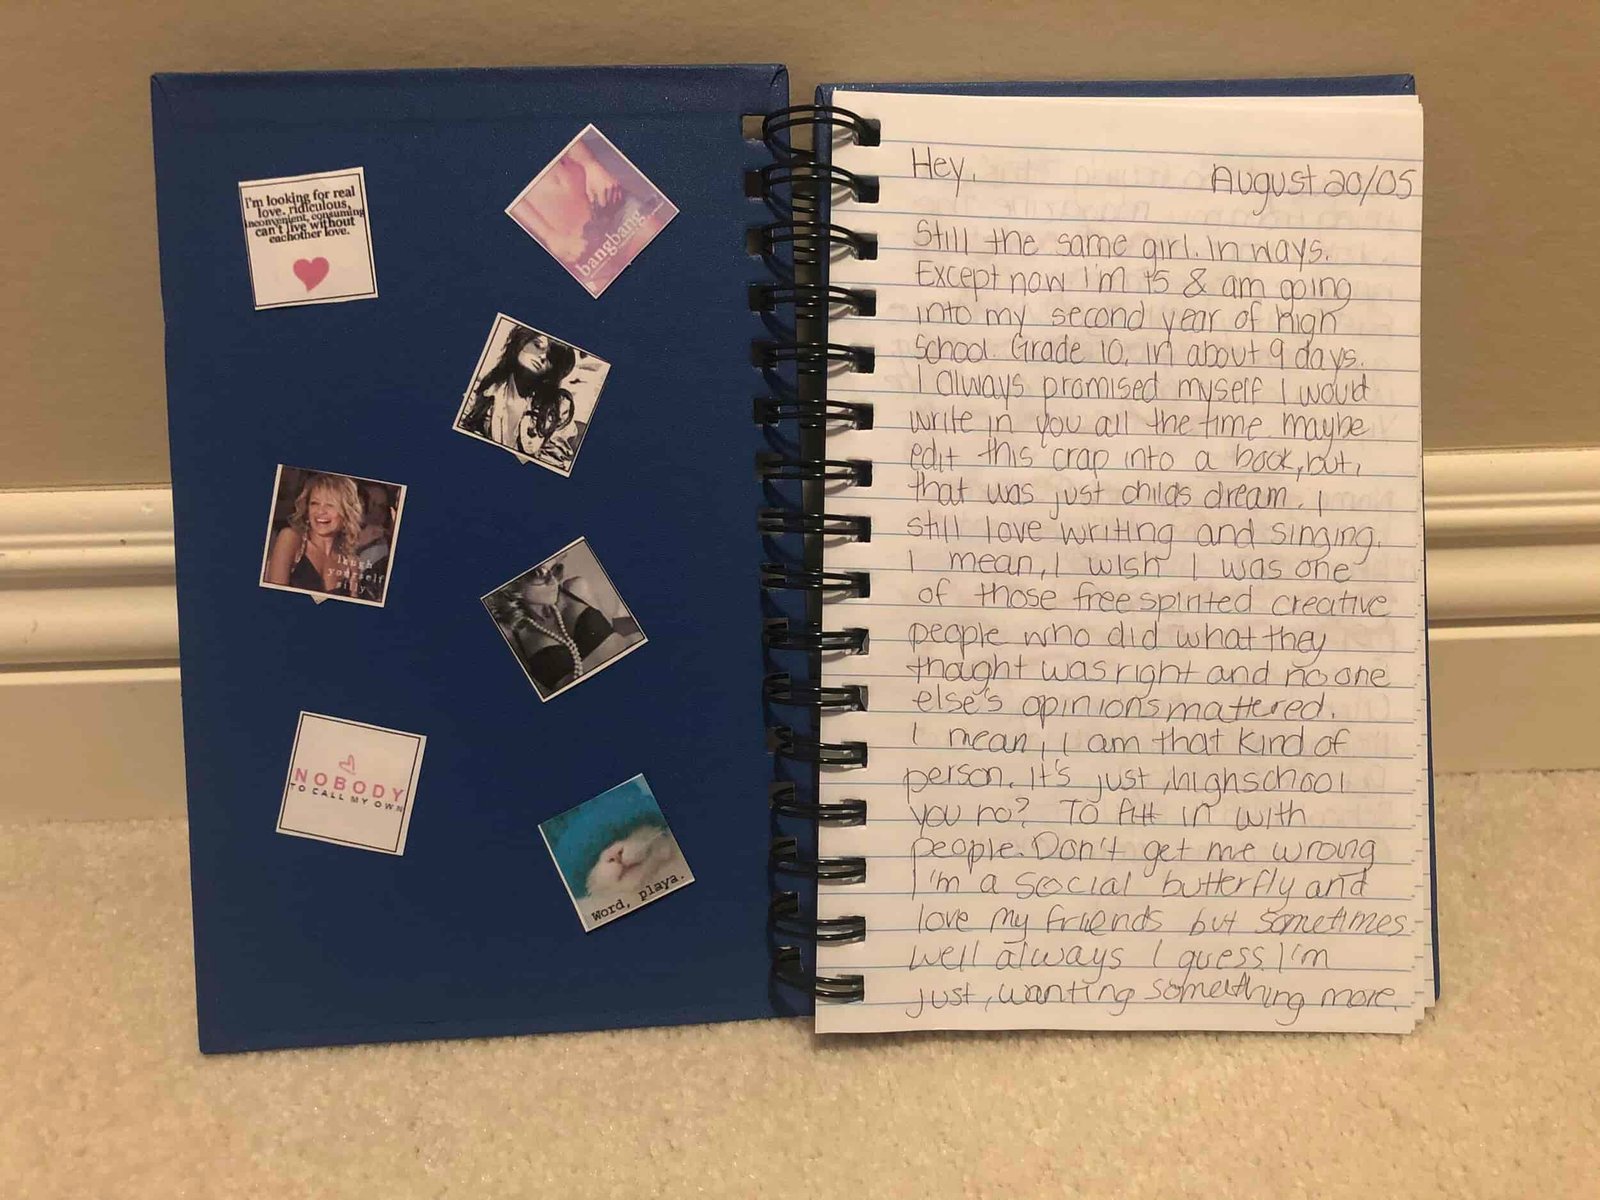 I'm looking for real
love. ridiculous,
inconvenient, consuming
can't live without
eachother love.
bangbang
laugh
yourself
silly
NOBODY
TO CALL MY OWN
Word, playa.
Hey, August 20/05
Still the same girl. In ways.
Except now I'm 15 & am going
into my second year of high
School. Grade 10, in about 9 days.
I always promised myself I would
write in you all the time maybe
edit this crap into a book, but,
that was just childs dream. I
still love writing and singing.
I mean, I wish I was one
of those free spirited creative
people who did what they
thought was right and no one
else's opinions mattered.
I mean, I am that kind of
person. It's just, highschool
you no? To fit in with
people. Don't get me wrong
I'm a social butterfly and
love my friends but sometimes
well always I guess I'm
just, wanting something more.